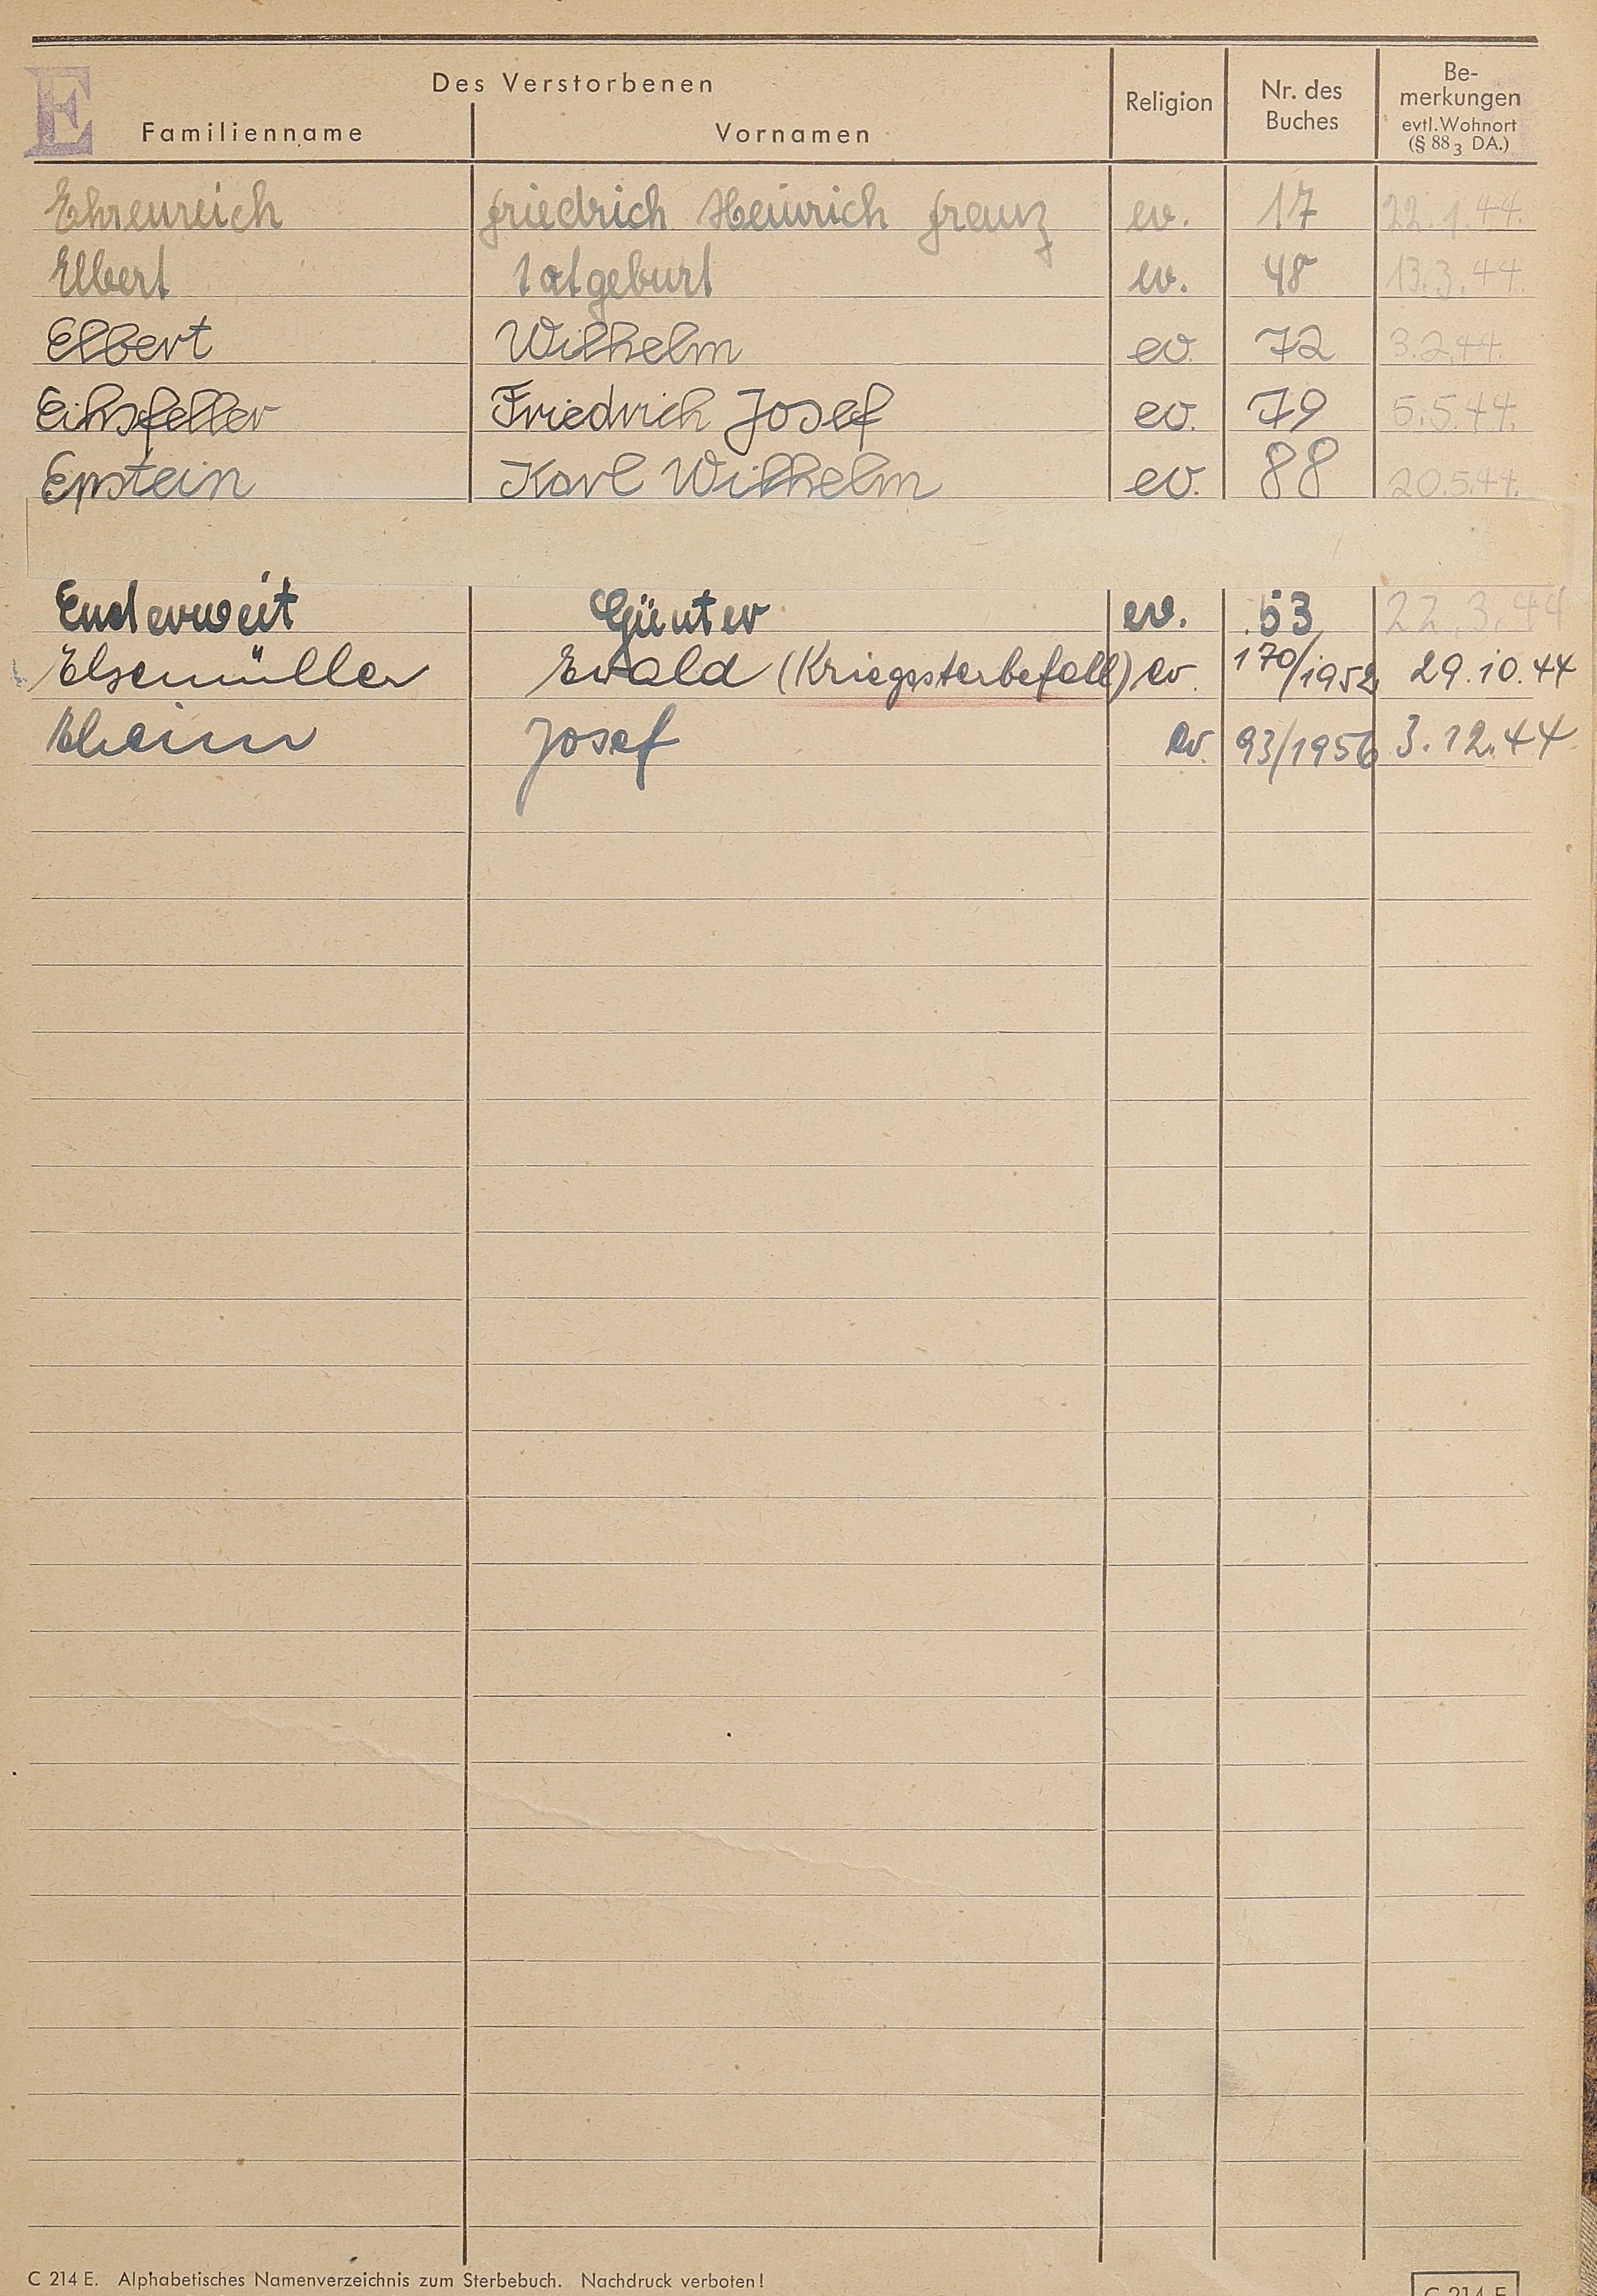 E
Des Verstorbenen
Familienname Vornamen Religion Nr. des Buches Be-merkungen evtl. Wohnort (§ 88 3 DA.)
Ehrenreich Friedrich Heinrich Franz ev. 17 22.1.44.
Elbert Totgeburt ev. 48 13.3.44.
Elbert Wilhelm ev. 72 3.2.44.
Friedrich Josef ev. 79 5.5.44.
Epstein Karl Wilhelm ev. 88 20.5.44.
Enderweit Günter ev. 53 22.3.44
Elsemüller Ewald (Kriegssterbefall) ev. 170/1952 29.10.44
Josef ev. 93/1956 3.12.44
C 214 E. Alphabetisches Namenverzeichnis zum Sterbebuch. Nachdruck verboten!
C 214 E